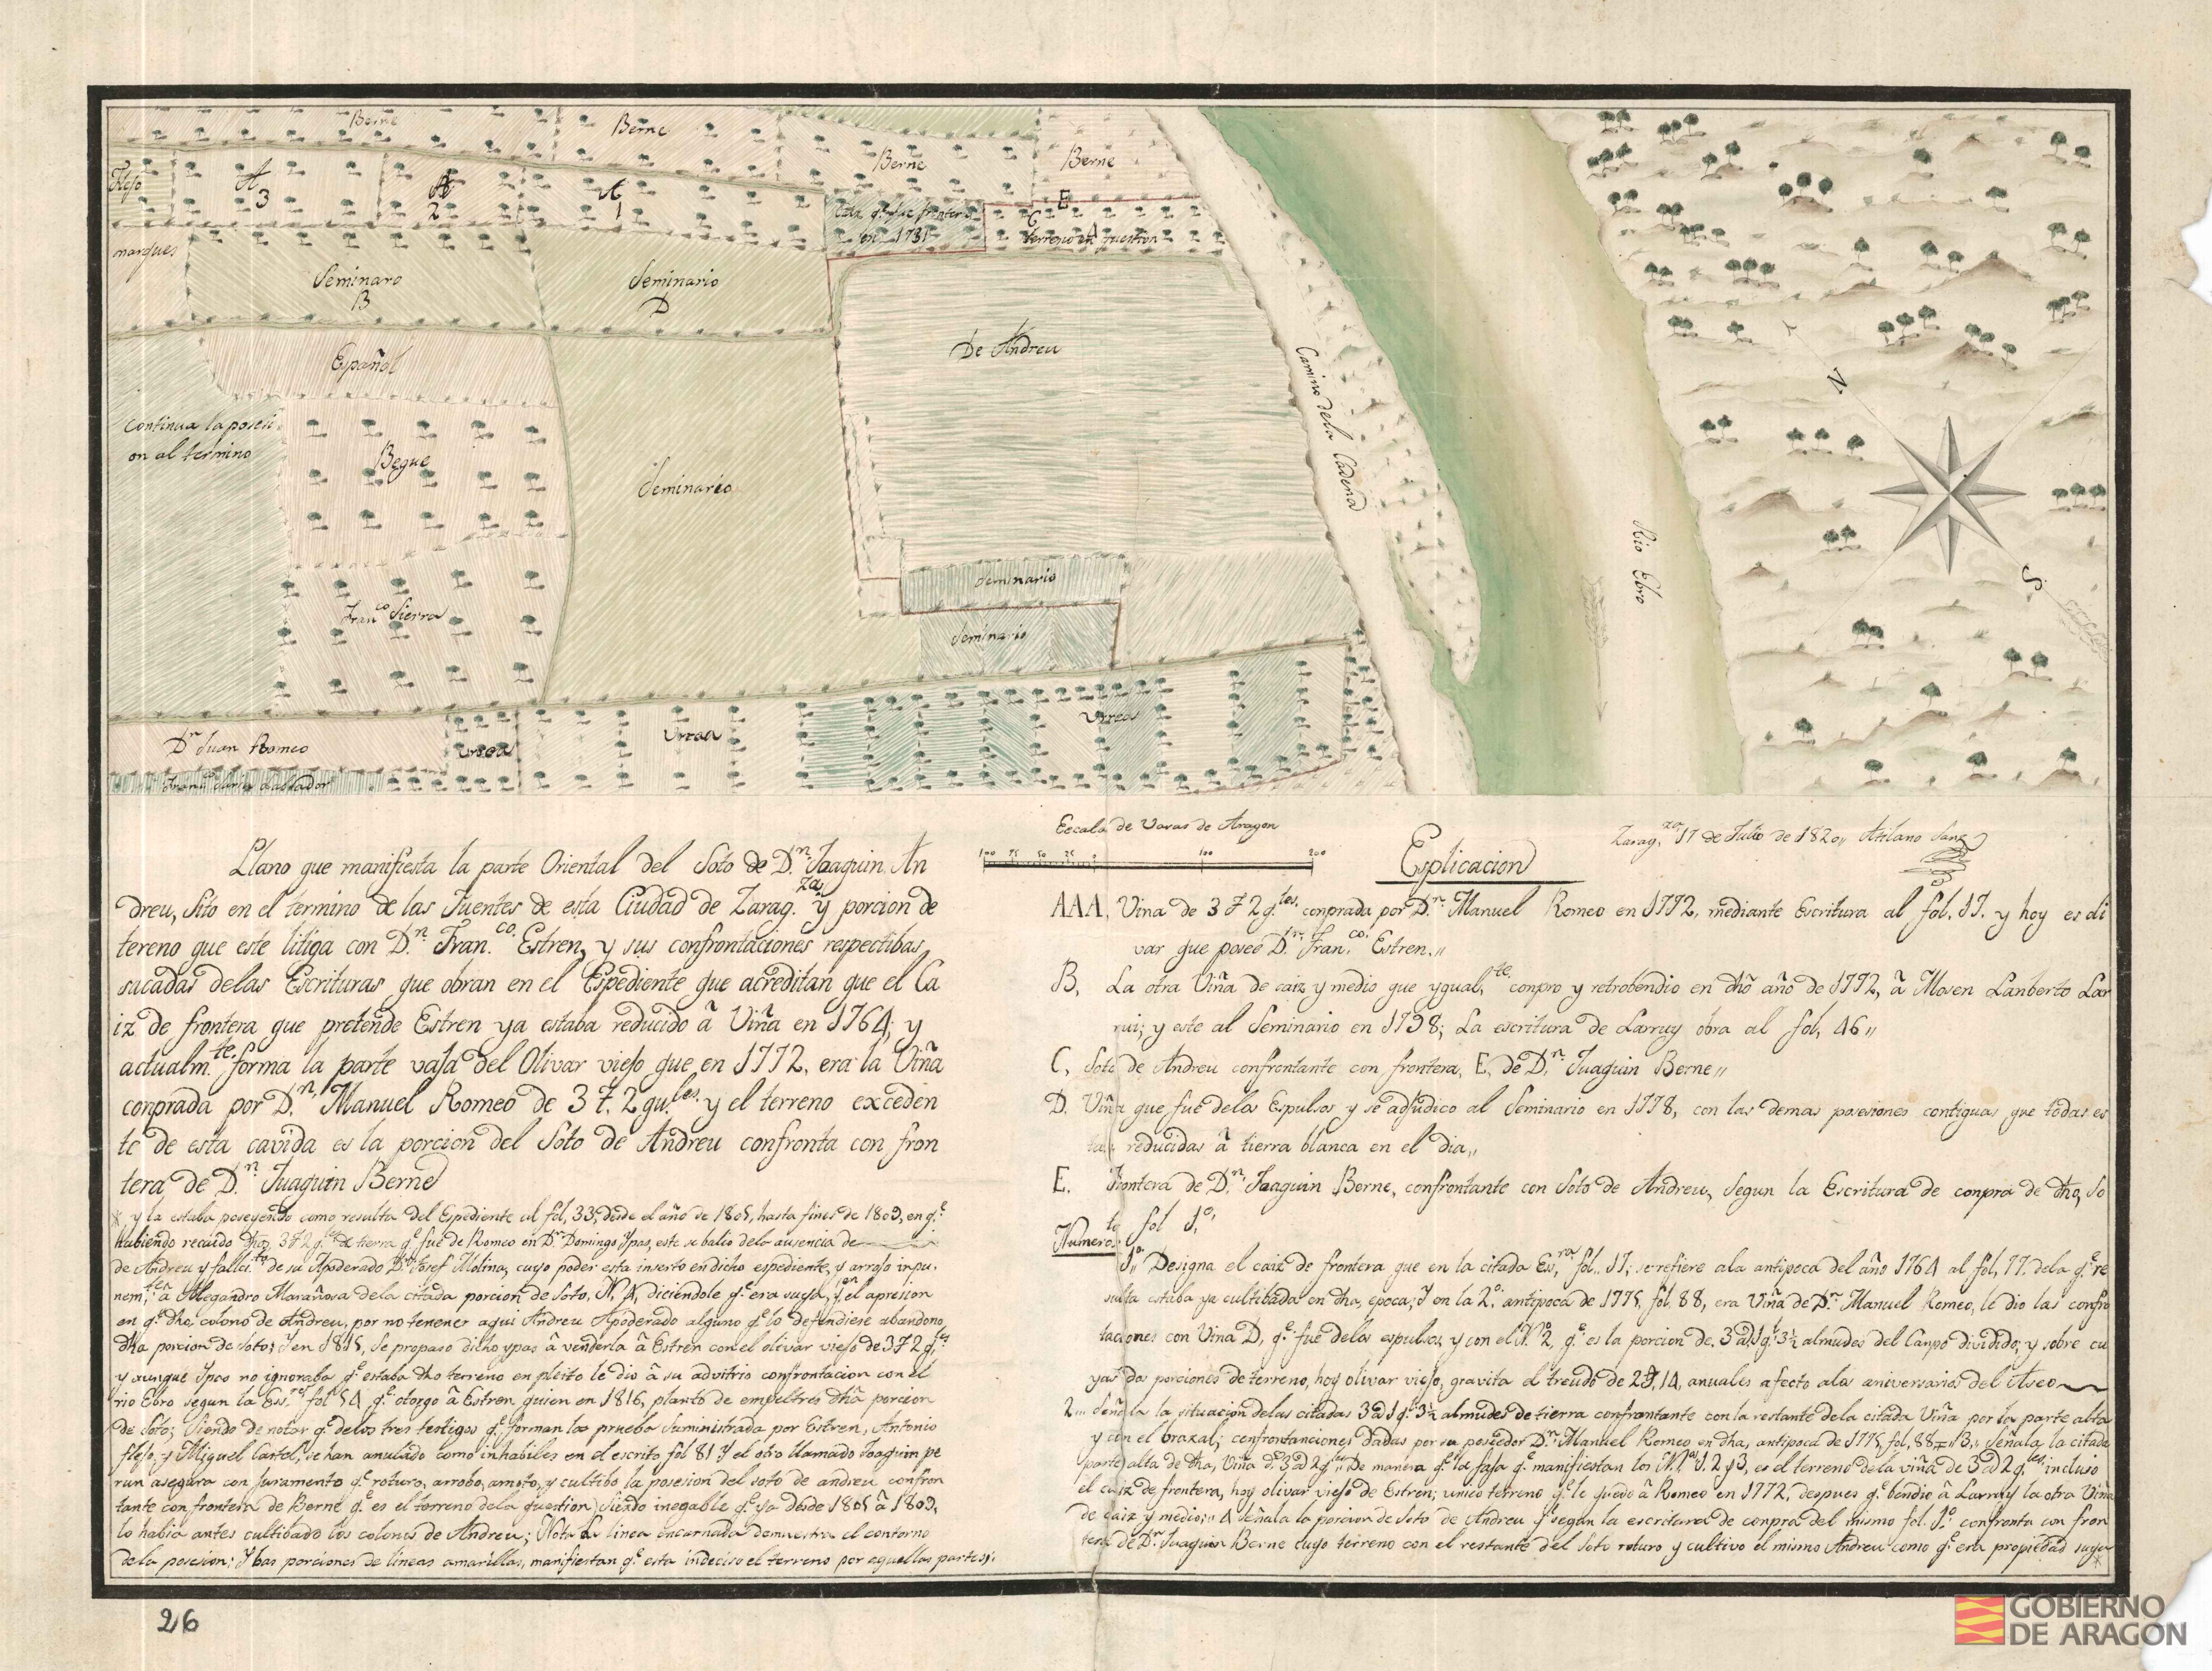 Berne
Berne
Berne
Berne
Flejo
A
3
A
2
A
1
E
en 1731
C
terreno en question
marques
Seminaro
B
Seminario
D
De Andreu
Español
Continua la posesi
on al termino
Begue
Seminario
Camino dela Cadena
Rio Ebro
N
S
Seminario
Seminario
Fran.co Sierra
Dn Juan Romeo
Urrea
Urrea
Urreas
Labrador
Escala de Varas de Aragon
100 75 50 25 0 100 200
Zarag.za 17 de Julio de 1820,, Atilano Sanz
Llano que manifiesta la parte Oriental del Soto de D.n Joaquin An
dreu, Sito en el termino de las Fuentes de esta Ciudad de Zarag.za y porcion de
tereno que este litiga con D.n Fran.co Estren, y sus confrontaciones respectibas,
sacadas delas Escrituras que obran en el Espediente que acreditan que el Ca
iz de frontera que pretende Estren ya estaba reducido â Viña en 1764; y
actualm.te forma la parte vaja del Olivar viejo que en 1772, era la Viña
conprada por D.n Manuel Romeo de 3 7. 2 qu.les y el terreno exceden
te de esta cavida es la porcion del Soto de Andreu confronta con fron
tera de D.n Juaquin Berne
* y la estaba poseyendo como resulta del Espediente al fol, 33, desde el año de 1805, hasta fines de 1809, en q.e
habiendo recaido 3 7 2 q.s de tierra q.e fue de Romeo en D.n Domingo Ypas, este se balio dela ausencia de
de Andreu y fallci.to de su Apoderado D.n Josef Molina, cuyo poder esta inserto en dicho espediente, y arrojo inpu.
nem.te â Alegandro Marañosa dela citada porcion de Soto, N. 4, diciendole q.e era suya, y en el apresion
en q.e dho, colono de Andreu, por no tener aqui Andreu Apoderado alguno q.e lo defendiese abandono,
dha porcion de soto; y en 1815, se propaso dicho ypas â venderla â Estren con el olivar viejo de 3 7 2 q.les
y aunque Ypas no ignoraba q.e estaba dho terreno en pleito le dio â su advitrio confrontacion con el
rio Ebro segun la Es.ra fol 54 q.e otorgo â Estren quien en 1816, planto de empeltres dhâ porcion
de Soto; Siendo de notar q.e delos tres testigos q.e forman la prueba suministrada por Estren, Antonio
flejo, y Miguel Cartel, se han anulado como inhabiles en el escrito fol 81 y el otro llamado Joaquin pe
run asegura con juramento q.e roturo, arrobo, amoto, y cultibo la posesion del soto de andreu confron
tante con frontera de Berne q.e es el terreno dela question, siendo inegable q.e ya desde 1805 â 1809,
lo habia antes cultibado los colonos de Andreu; Nota La linea encarnada demuestra el contorno
dela posesion; Y las porciones de lineas amarillas, manifiestan q.e esta indeciso el terreno por aquellas partes;
Esplicacion
AAA, Viña de 3 7 2 q.tes. conprada por D.n Manuel Romeo en 1772, mediante Escritura al fol. 17. y hoy es oli
var que poseé D.n Fran.co Estren.,,
B, La otra Viña de caiz y medio que ygual.te conpro y retrobendio en dhô año de 1772, â Mosen Lanberto Lar
rui; y este al Seminario en 1798; La escritura de Larruy obra al fol, 46,,
C, Soto de Andreu confrontante con frontera, E, de D.n Juaquin Berne,,
D. Viña que fue delos Espulsos y se adjudico al Seminario en 1778, con las demas posesiones contiguas que todas es
tan reducidas â tierra blanca en el dia,,
E. Frontera de D.n Joaquin Berne, confrontante con Soto de Andreu, Segun la Escritura de conpra de dho, So
to fol 1.o
Numero.
1.o,, Designa el caiz de frontera que en la citada Es.ra fol.. 17, se refiere ala antipoca del año 1764 al fol, 77. dela q.e re
sulta estaba ya cultibada en dha, epoca; y en la 2.a antipoca de 1775, fol, 88, era Viña de D.n Manuel Romeo, le dio las confro
taciones con Vina D, q.e fue delos espulsos, y con el N.o 2, q.e es la porcion de 3 q.s 3½ almudes del Canpo dividido; y sobre cu
yas dos porciones de terreno, hoy olivar viejo, gravita el treudo de 14, anuales afecto alos aniversarios del Aseo
2... Señala la situacion delas citadas 3½ almudes de tierra confrontante con la restante dela citada Viña por la parte alta
y con el brazal; confrontanciones dadas por su poseedor D.n Manuel Romeo en dha, antipoca de 1775, fol, 88,, 3,, Señala la citada
parte alta de dha, Viña de 3 2 q.s,, De manera q.e la faja q.e manifiestan los N.os 1. 2 y 3, es el terreno dela viña de 3 2 q.les incluso
el caiz de frontera, hoy olivar viejo de Estren; unico terreno q.e le quedo â Romeo en 1772, despues q.e bendio â Larruy la otra Viña
de caiz y medio;,, 4 Señala la porcion de Soto de Andreu q.e segun la escritura de conpra del mismo fol. 1.o confronta con fron
tera de D.n Juaquin Berne cuyo terreno con el restante del Soto roturo y cultivo el mismo Andreu como q.e era propiedad suya
*
26
GOBIERNO
DE ARAGON